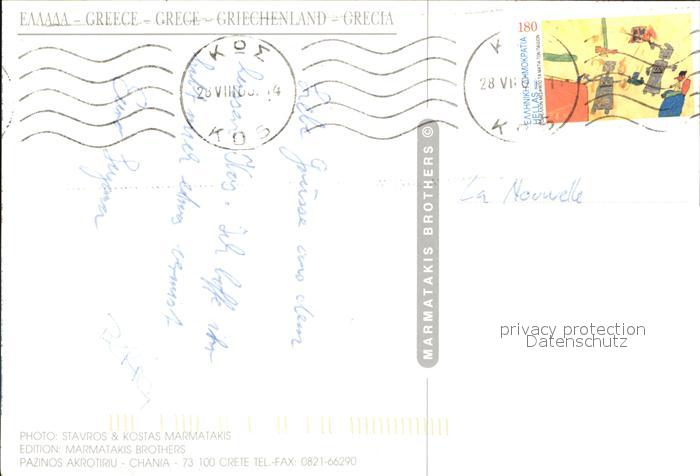 ΕΛΛΑΔΑ – GREECE – GRECE – GRIECHENLAND – GRECIA
ΚΩΣ
28 VIII
14
KOS
ΚΩΣ
28 VII
KOS
180
ΕΛΛΗΝΙΚΗ ΔΗΜΟΚΡΑΤΙΑ
HELLAS
Liebe Grüsse aus dem
Kos. Ich hoffe ihr
habt mich etwas vermisst.
La Nouvelle
MARMATAKIS BROTHERS ©
privacy protection
Datenschutz
PHOTO: STAVROS & KOSTAS MARMATAKIS
EDITION: MARMATAKIS BROTHERS
PAZINOS AKROTIRIU - CHANIA - 73 100 CRETE TEL.-FAX: 0821-66290